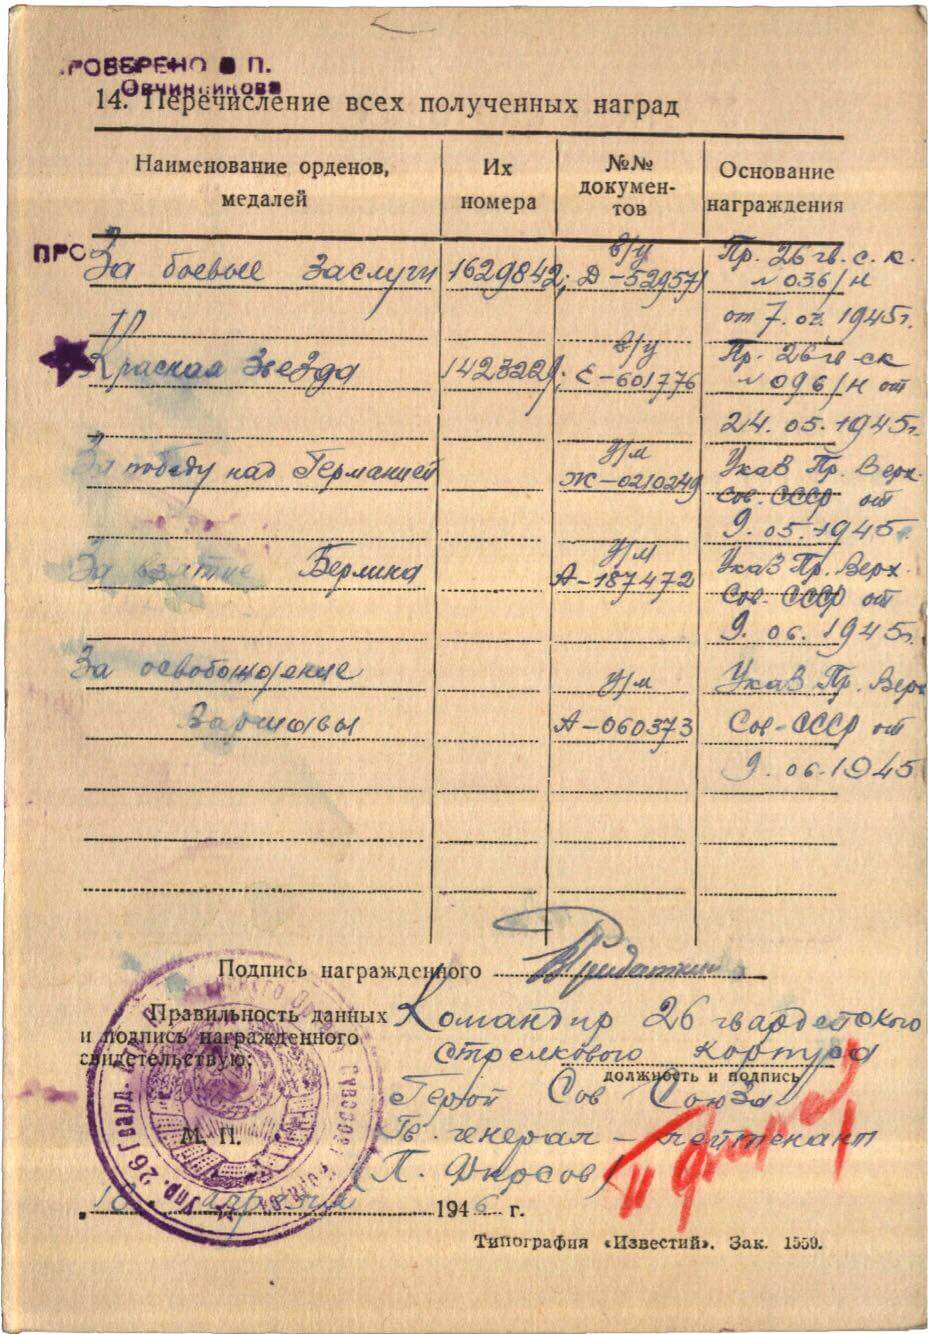 ПРОВЕРЕНО В П.
Овчинникова
14. Перечисление всех полученных наград
Наименование орденов, медалей
Их номера
№№ докумен-тов
Основание награждения
ПРО
За боевые заслуги 1629842; в/у Д-529571 Пр. 26 гв. с. к. №036/н
от 7.02.1945г.
Красная Звезда 1423229; в/у Е-601776 Пр. 26 гв. ск №096/н от
24.05.1945г.
За победу над Германией у/м Ж-0210249 Указ Пр. Верх. Сов. СССР от
9.05.1945г.
За взятие Берлина у/м А-187472 Указ Пр. Верх. Сов. СССР от
9.06.1945г.
За освобождение у/м Указ Пр. Верх
Варшавы А-060373 Сов. СССР от
9.06.1945
Подпись награжденного
Правильность данных
и подпись награжденного
свидетельствую:
Командир 26 гвардейского
стрелкового корпуса
должность и подпись
Герой Сов Союза
Гв. генерал-лейтенант
(П. Фирсов)
М. П.
Упр. 26 Гвард.
"18" апреля 1946 г.
Типография «Известий». Зак. 1559.